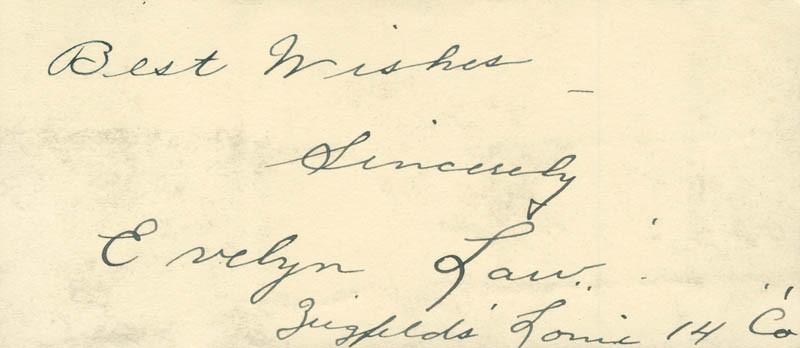 Best Wishes –
Sincerely
Evelyn Law.
Zeigfelds' "Louie 14" Co